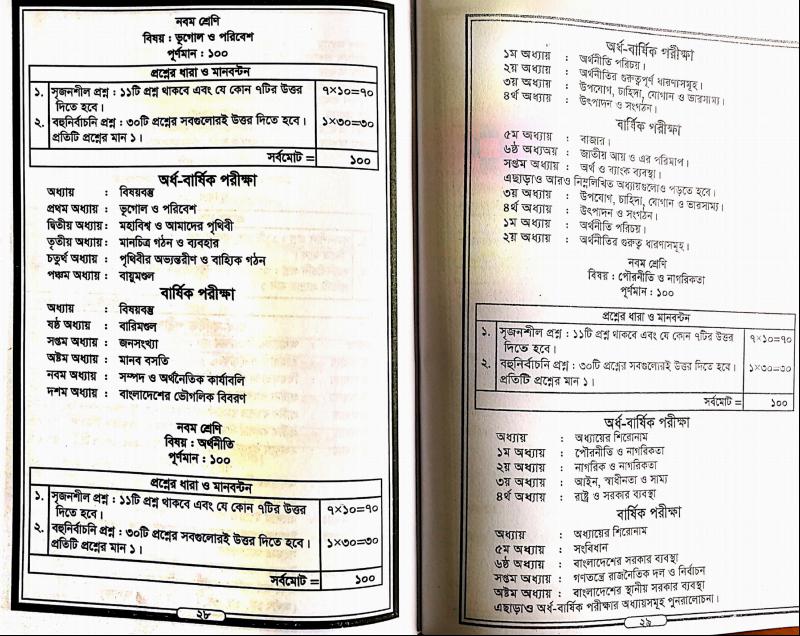 নবম শ্রেণি
বিষয় : ভূগোল ও পরিবেশ
পূর্ণমান : ১০০
প্রশ্নের ধারা ও মানবন্টন
১। সৃজনশীল প্রশ্ন : ১১টি প্রশ্ন থাকবে এবং যে কোন ৭টির উত্তর ৭×১০=৭০
দিতে হবে।
২। বহুনির্বাচনি প্রশ্ন : ৩০টি প্রশ্নের সবগুলোরই উত্তর দিতে হবে। ১×৩০=৩০
প্রতিটি প্রশ্নের মান ১।
সর্বমোট = ১০০
অর্ধ-বার্ষিক পরীক্ষা
অধ্যায় : বিষয়বস্তু
প্রথম অধ্যায় : ভূগোল ও পরিবেশ
দ্বিতীয় অধ্যায় : মহাবিশ্ব ও আমাদের পৃথিবী
তৃতীয় অধ্যায় : মানচিত্র গঠন ও ব্যবহার
চতুর্থ অধ্যায় : পৃথিবীর অভ্যন্তরীণ ও বাহ্যিক গঠন
পঞ্চম অধ্যায় : বায়ুমণ্ডল
বার্ষিক পরীক্ষা
অধ্যায় : বিষয়বস্তু
ষষ্ঠ অধ্যায় : বারিমণ্ডল
সপ্তম অধ্যায় : জনসংখ্যা
অষ্টম অধ্যায় : মানব বসতি
নবম অধ্যায় : সম্পদ ও অর্থনৈতিক কার্যাবলি
দশম অধ্যায় : বাংলাদেশের ভৌগলিক বিবরণ
নবম শ্রেণি
বিষয় : অর্থনীতি
পূর্ণমান : ১০০
প্রশ্নের ধারা ও মানবন্টন
১। সৃজনশীল প্রশ্ন : ১১টি প্রশ্ন থাকবে এবং যে কোন ৭টির উত্তর ৭×১০=৭০
দিতে হবে।
২। বহুনির্বাচনি প্রশ্ন : ৩০টি প্রশ্নের সবগুলোরই উত্তর দিতে হবে। ১×৩০=৩০
প্রতিটি প্রশ্নের মান ১।
সর্বমোট = ১০০
২৮
অর্ধ-বার্ষিক পরীক্ষা
১ম অধ্যায় : অর্থনীতি পরিচয়।
২য় অধ্যায় : অর্থনীতির গুরুত্বপূর্ণ ধারণাসমূহ।
৩য় অধ্যায় : উপযোগ, চাহিদা, যোগান ও ভারসাম্য।
৪র্থ অধ্যায় : উৎপাদন ও সংগঠন।
বার্ষিক পরীক্ষা
৫ম অধ্যায় : বাজার।
৬ষ্ঠ অধ্যঅয় : জাতীয় আয় ও এর পরিমাপ।
সপ্তম অধ্যায় : অর্থ ও ব্যাংক ব্যবস্থা।
এছাড়াও আরও নিম্নলিখিত অধ্যায়গুলোও পড়তে হবে।
৩য় অধ্যায় : উপযোগ, চাহিদা, যোগান ও ভারসাম্য।
৪র্থ অধ্যায় : উৎপাদন ও সংগঠন।
১ম অধ্যায় : অর্থনীতি পরিচয়।
২য় অধ্যায় : অর্থনীতির গুরুত্ব ধারণাসমূহ।
নবম শ্রেণি
বিষয় : পৌরনীতি ও নাগরিকতা
পূর্ণমান : ১০০
প্রশ্নের ধারা ও মানবন্টন
১। সৃজনশীল প্রশ্ন : ১১টি প্রশ্ন থাকবে এবং যে কোন ৭টির উত্তর ৭×১০=৭০
দিতে হবে।
২। বহুনির্বাচনি প্রশ্ন : ৩০টি প্রশ্নের সবগুলোরই উত্তর দিতে হবে। ১×৩০=৩০
প্রতিটি প্রশ্নের মান ১।
সর্বমোট = ১০০
অর্ধ-বার্ষিক পরীক্ষা
অধ্যায় : অধ্যায়ের শিরোনাম
১ম অধ্যায় : পৌরনীতি ও নাগরিকতা
২য় অধ্যায় : নাগরিক ও নাগরিকতা
৩য় অধ্যায় : আইন, স্বাধীনতা ও সাম্য
৪র্থ অধ্যায় : রাষ্ট্র ও সরকার ব্যবস্থা
বার্ষিক পরীক্ষা
অধ্যায় : অধ্যায়ের শিরোনাম
৫ম অধ্যায় : সংবিধান
৬ষ্ঠ অধ্যায় : বাংলাদেশের সরকার ব্যবস্থা
সপ্তম অধ্যায় : গণতন্ত্রে রাজনৈতিক দল ও নির্বাচন
অষ্টম অধ্যায় : বাংলাদেশের স্থানীয় সরকার ব্যবস্থা
এছাড়াও অর্ধ-বার্ষিক পরীক্ষার অধ্যায়সমূহ পুনরালোচনা।
২৯